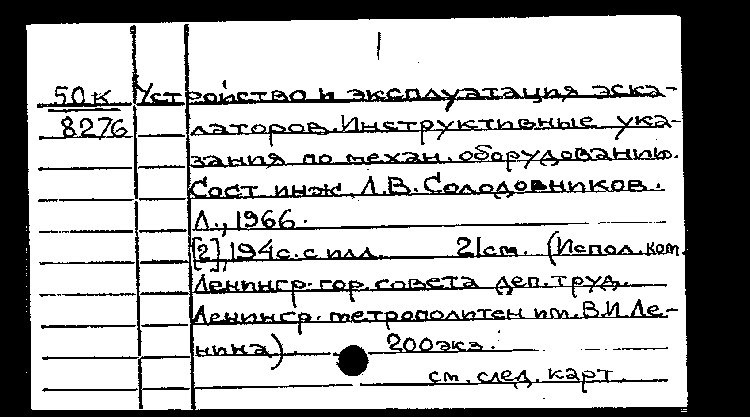 1
50к Устройство и эксплуатация эска-
8276 латоров. Инструктивные ука-
зания по механ. оборудованию.
Сост инж. Л.В. Солодовников.
Л., 1966.
[2], 194с. с илл. 21см. (Испол. ком.
Ленингр. гор. совета деп. труд.
Ленингр. метрополитен им. В.И Ле-
нина) 200экз.
см. след. карт.